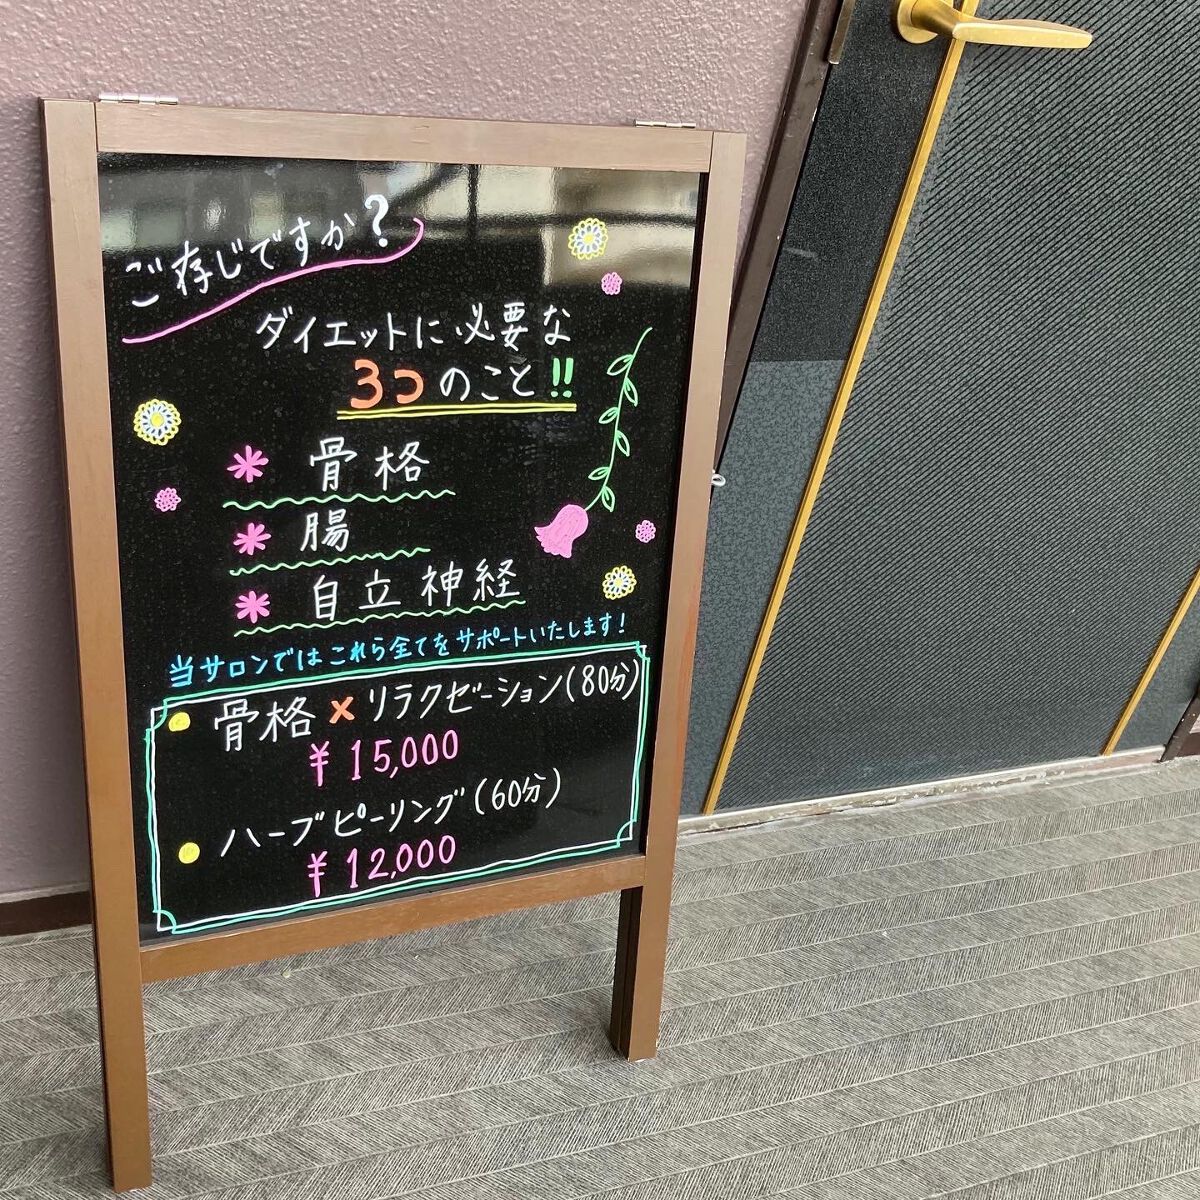 ご存じですか?
ダイエットに必要な
3つのこと!!
* 骨格
* 腸
* 自立神経
当サロンではこれら全てをサポートいたします!
● 骨格×リラクゼーション(80分)
¥15,000
● ハーブピーリング(60分)
¥12,000